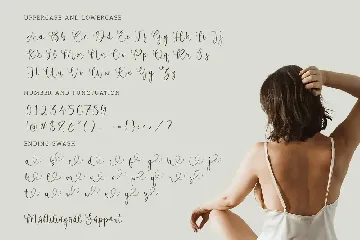 UPPERCASE AND LOWERCASE
Aa Bb Cc Dd Ee Ff Gg Hh Ii Jj
Kk Ll Mm Nn Oo Pp Qq Rr Ss
Tt Uu Vv Ww Xx Yy Zz
NUMBER AND PUNCTUATION
0123456789
ENDING SWASH
a b c d e f g h i j
k l m n o p q r s
t u v w x y z
Multilingual Support